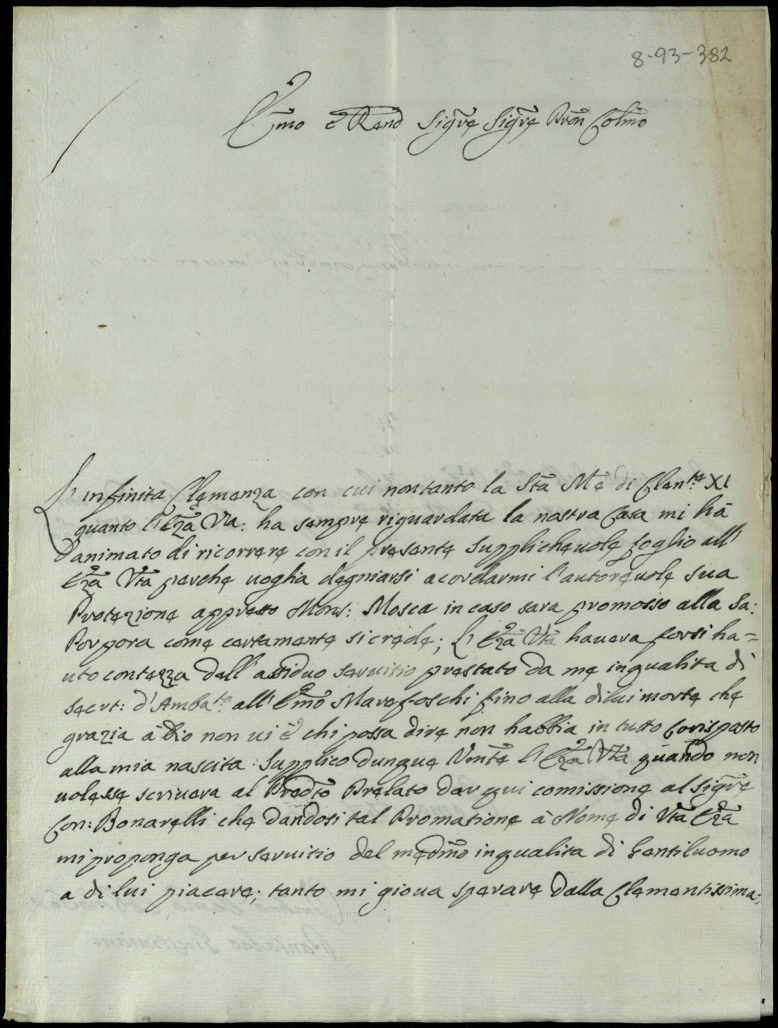 8-93-382
Em̃o e Rend Sigr̃e Sigr̃e Pron Colm̃o
L'infinita Clemenza con cui non tanto la Stã Mẽ di Clem.te XI
quanto l'Em̃za Vrã: ha sempre riguardata la nostra Casa mi hà
d'animato di ricorrere con il presente supplicheuole foglio all'
Em̃za Vrã perche uoglia degniarsi acordarmi l'autoreuole sua
Protezione appresso Mons: Mosca in caso sara promosso alla Sa:
Porpora come certamente si crede; L'Em̃za Vrã hauera forsi ha=
uto contezza dell'assiduo seruitio prestato da me in qualita di
secrt: d'Ambat.ta all'Em̃o Marefoschi fino alla di lui morte che
grazia à Dio non ui è chi possa dire non habbia in tutto corisposto
alla mia nascita: Supplico dunque l'Em̃za Vrã quando non
uolesse scriuere al Prelato dar qui comissione al Sigr̃e
Con: Bonarelli che dandosi tal Promotione à Nome di Vrã Em̃za
mi proponga per seruitio del medm̃o in qualita di Gentiluomo
a di lui piacere; tanto mi gioua sperare dalla Clementissima: